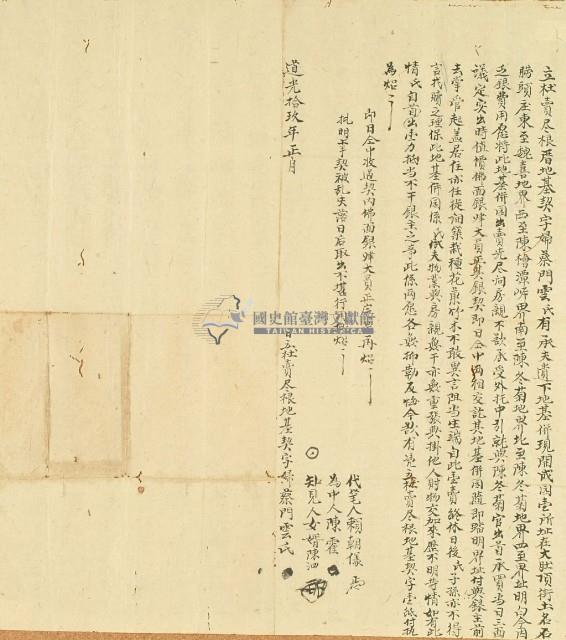 立杜賣尽根厝地基契字婦蔡門雲氏有承夫遺下地基併現開成园壹所址在大肚頂街土名石
勝頭庄東至魏喜地界西至陳檜潭崎界南至陳冬菊地界北至陳冬菊地界四至界址明白今因
乏銀費用愿將此地基併园出賣先尽问房親不欲承受外托中引就與陳冬菊官出首承買当日三面
議定实出時值價佛面銀肆大員正其銀契即日仝中両相交訖其地基併园隨即踏明界址付與銀主前
去掌管起盖居住亦任從開築栽種花菓竹木不敢異言阻当生端自此壹賣終休日後氏子孫亦不得
言找贖之理保此地基併园係氏承夫物業與房親無干亦無重張典掛他人財物交加來歷不明等情如有此
情氏自首出壹力抵当不干銀主之事此係両愿各無抑勒反悔今欲有憑立杜賣尽根地基契字壹紙付执
為炤
即日仝中收過契內佛面銀肆大員正完足再炤
批明上手契被乱失落日后取出不堪行用炤
道光拾玖年正月 日立杜賣尽根地基契字婦蔡門雲氏
代笔人賴朝儀
為中人陳霍
知見人女婿陳四
國史館臺灣文獻館
TAIWAN HISTORICA